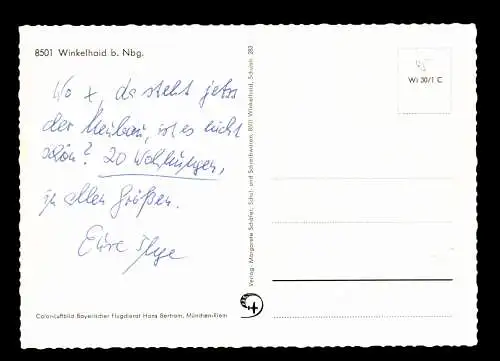 8501 Winkelhaid b. Nbg.
Wo x, da steht jetzt
der Neubau, ist es nicht
schön? 20 Wohnungen,
in allen Größen.
Eure Ilge
Color-Luftbild Bayerischer Flugdienst Hans Bertram, München-Riem
Verlag: Margarete Schäfer, Schul- und Schreibwaren, 8501 Winkelhaid, Schulstr. 283
45
Wi 30/1 C